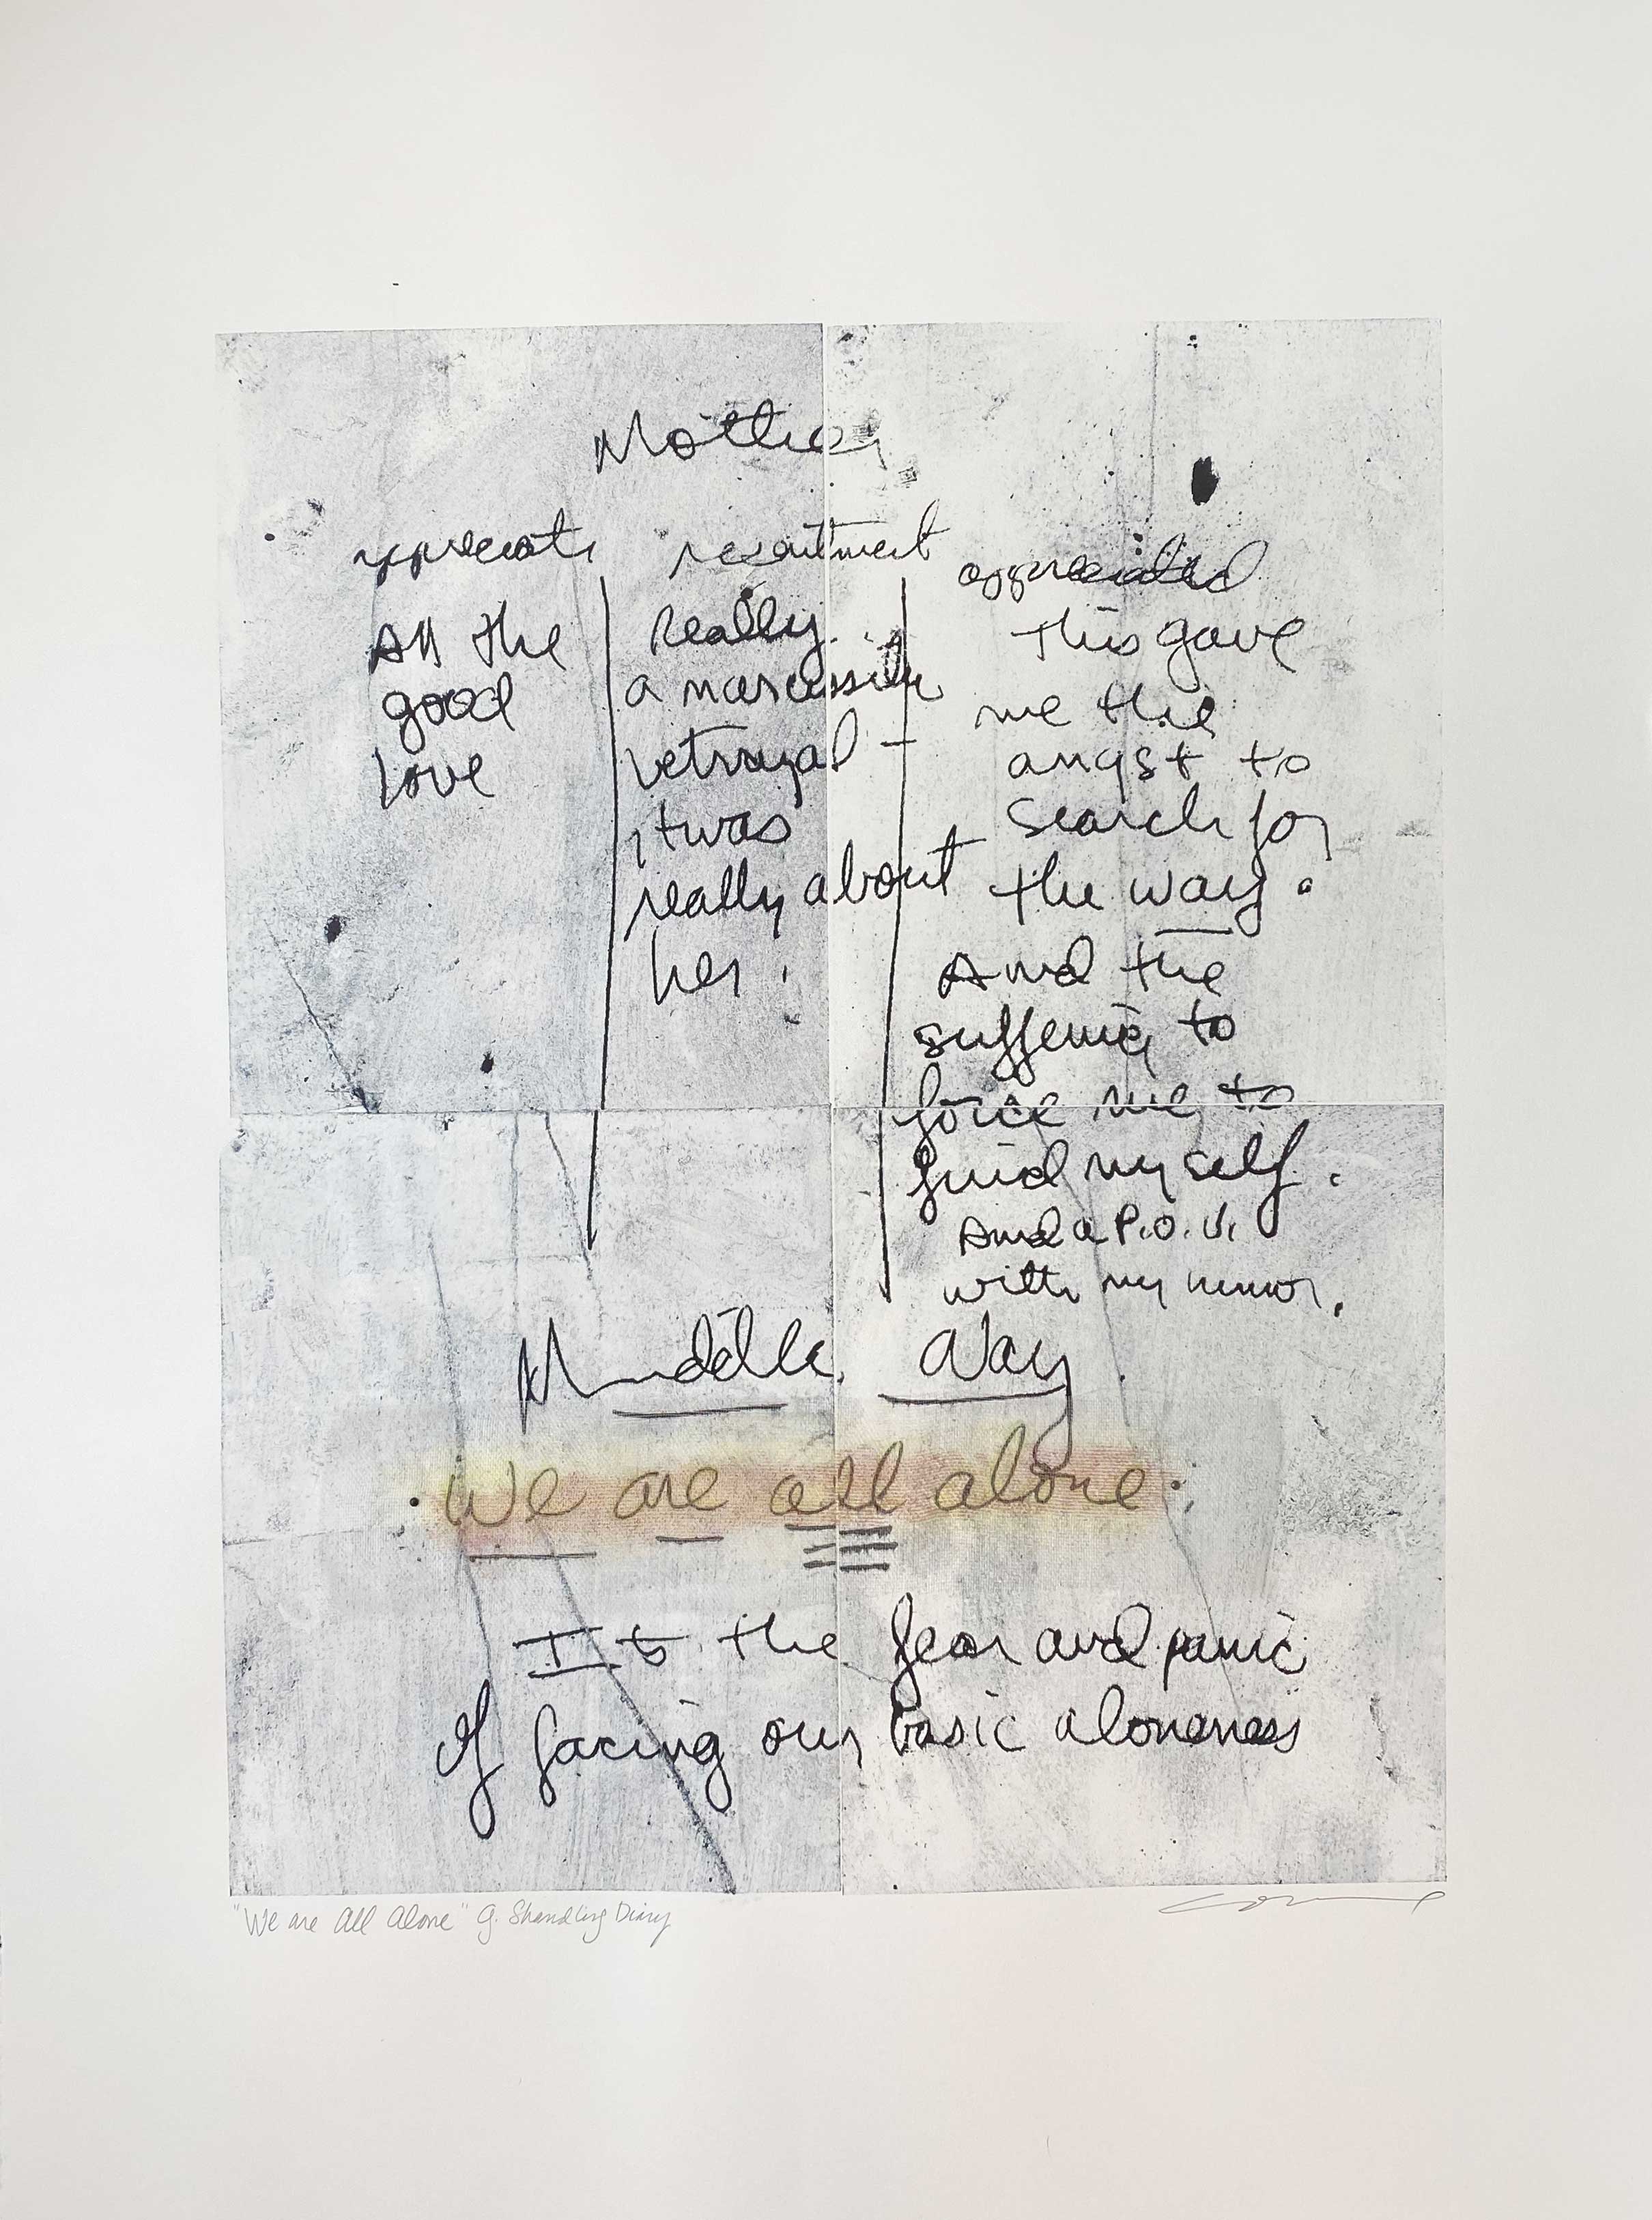 Mother
appreciate
resentment
appreciated
All the
good
love
Really
a narcissistic
betrayal -
it was
really about
her.
This gave
me the
angst to
search for
the way.
And the
suffering to
force me to
find myself.
And a P.O.V.
with my humor.
Middle Way
We are all alone.
Its the fear and panic
Of facing our basic aloneness
"We are All Alone" G. Shandling Diary